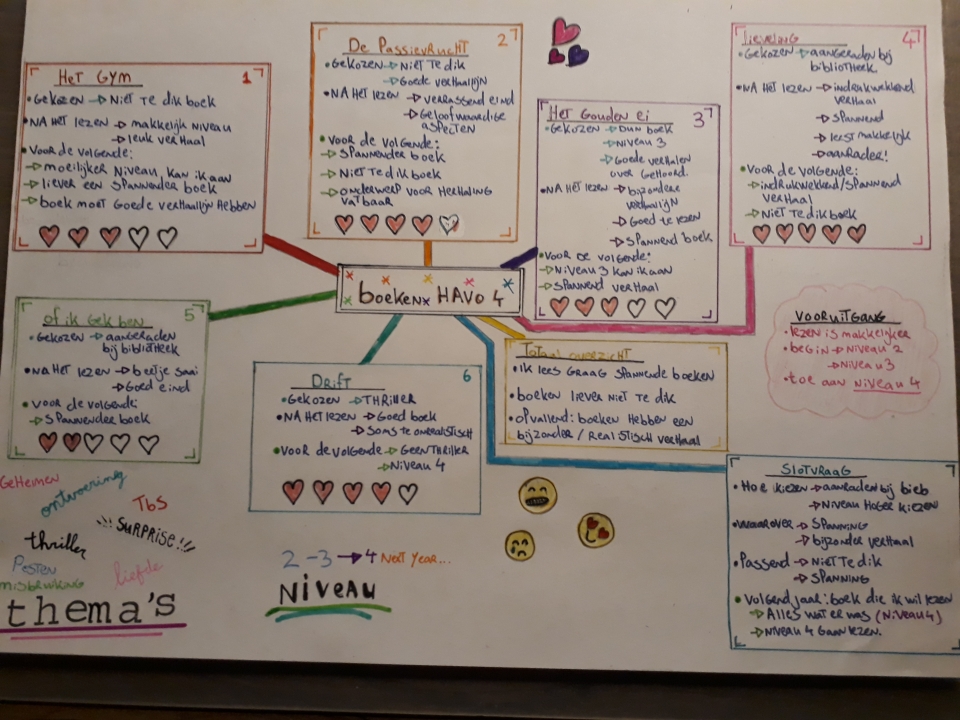 Het Gym 1
• Gekozen → Niet te dik boek
• Na het lezen → makkelijk niveau
→ leuk verhaal
• Voor de volgende:
→ moeilijker niveau kan ik aan
→ liever een spannender boek
→ boek moet goede verhaallijn hebben
De Passievrucht 2
• Gekozen → Niet te dik
→ Goede verhaallijn
• Na het lezen → verrassend eind
→ Geloofwaardige aspecten
• Voor de volgende:
→ spannender boek
→ Niet te dik boek
→ onderwerp voor herhaling vatbaar
Het Gouden ei 3
• Gekozen → Dun boek
→ Niveau 3
→ Goede verhalen over gehoord.
• Na het lezen → bijzondere verhaallijn
→ Goed te lezen
→ Spannend boek
• Voor de volgende:
→ Niveau 3 kan ik aan
→ Spannend verhaal
lieveling 4
• Gekozen → aangeraden bij bibliotheek
• Na het lezen → indrukwekkend verhaal
→ spannend
→ leest makkelijk
→ aanrader!
• Voor de volgende:
→ indrukwekkend/spannend verhaal
→ Niet te dik boek
boeken HAVO 4
of ik gek ben 5
• Gekozen → aangeraden bij bibliotheek
• Na het lezen → beetje saai
→ Goed eind
• Voor de volgende:
→ Spannender boek
Drift 6
• Gekozen → THriller
• Na het lezen → Goed boek
→ Soms te onrealistisch
• Voor de volgende → Geen thriller
→ Niveau 4
Totaal overzicht
• Ik lees graag spannende boeken
• boeken liever niet te dik
• opvallend: boeken hebben een bijzonder / realistisch verhaal
Vooruitgang
• lezen is makkelijker
• begin → Niveau 2
→ Niveau 3
• toe aan Niveau 4
Slotvraag
• Hoe kiezen → aanraden bij bieb
→ Niveau hoger kiezen
• Waarover → Spanning
→ bijzonder verhaal
• Passend → Niet te dik
→ Spanning
• Volgend jaar: boek die ik wil lezen
→ Alles wat er was (Niveau 4)
→ Niveau 4 gaan lezen.
Geheimen
ontvoering
Tbs
!!! Surprise!!!
thriller
Pesten
misbruiking
liefde
thema's
2 - 3 → 4 Next year...
Niveau